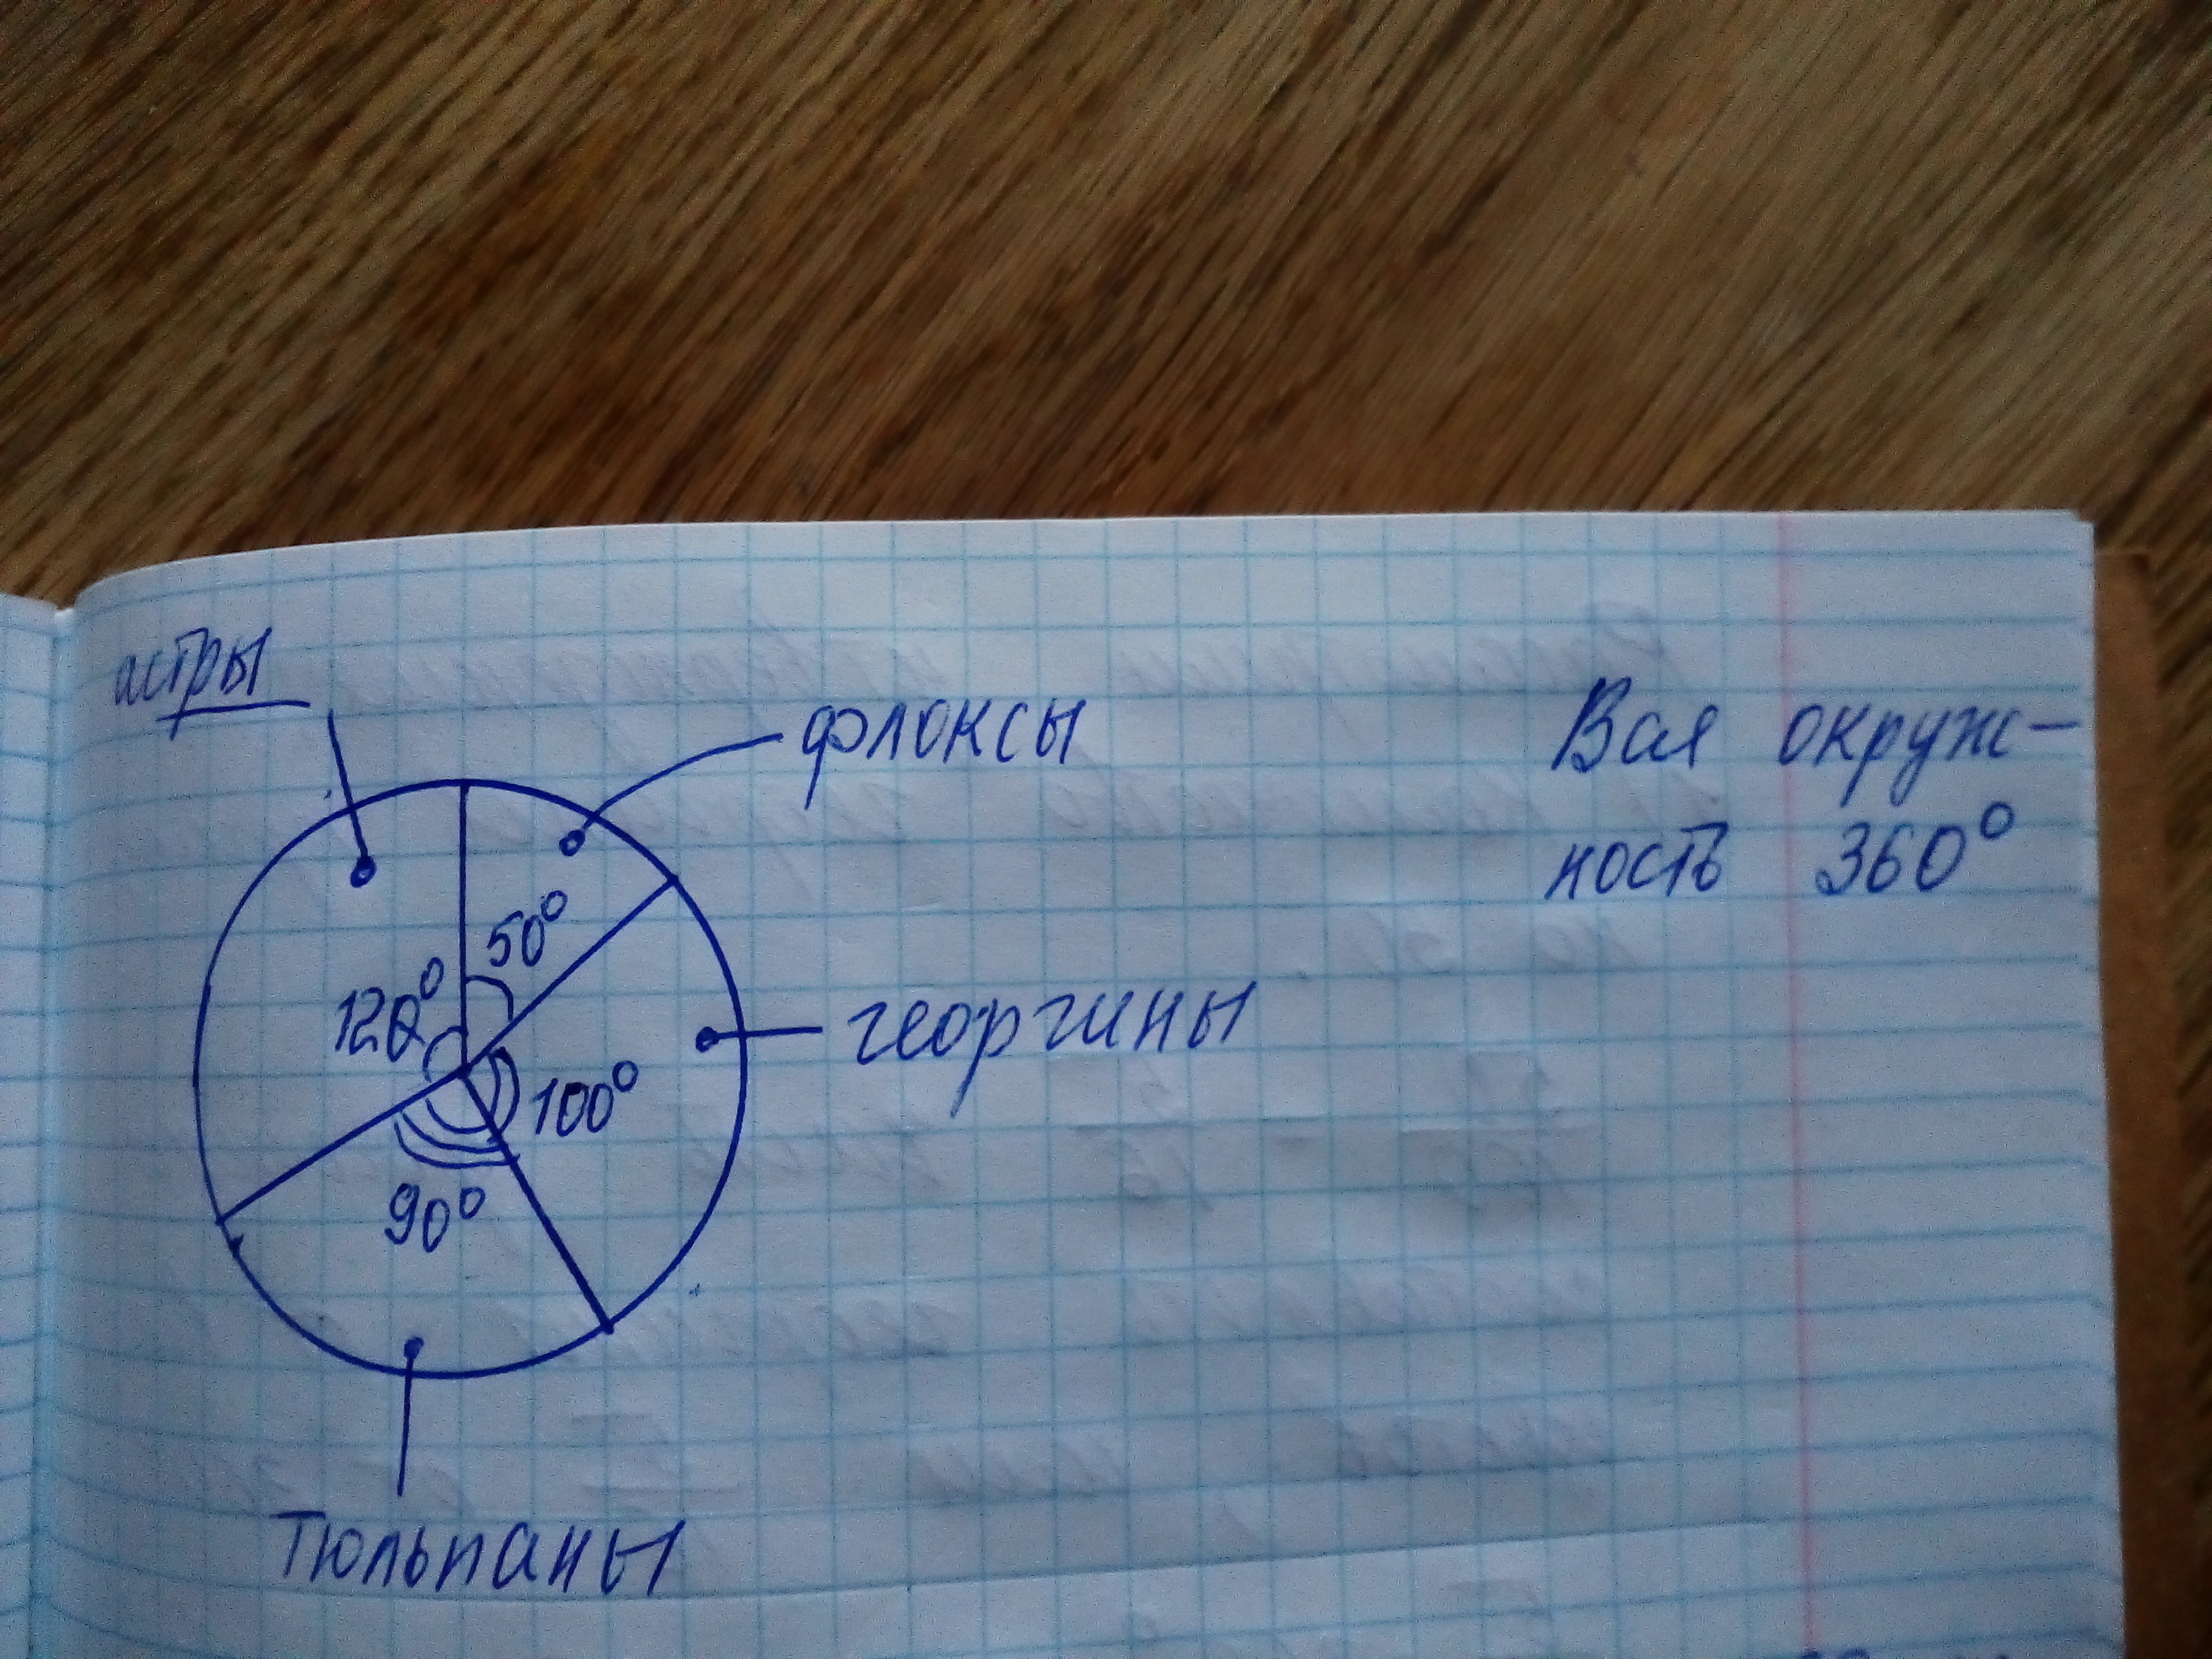 астры
флоксы
Вся окруж-
ность 360°
50°
120°
георгины
100°
90°
Тюльпаны